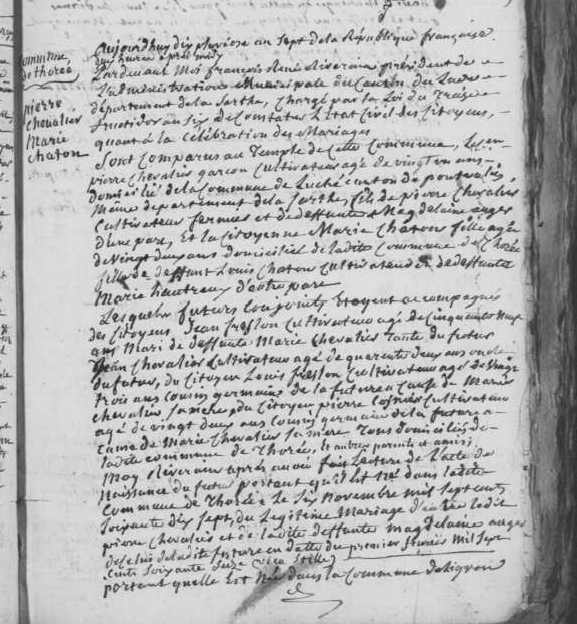 Commune
de thorée
pierre
chevalier
Marie
chaton
aujourdhuy dix pluviose an sept de la République française
dix heures après midy
Pardevant Moi françois René Riverain président de
Ladministration Municipale du Canton du Lude
département de la Sarthe, Chargé par la Loi du Treize
fructidor an six de Constater L'Etat Civil des Citoyens,
quant à la Célébration des Mariages
Sont Comparus au Temple de Cette Commune, Le
pierre Chevalier garçon Cultivateur agé de vingt un ans
domicilié de la Commune de Luché canton de pontvalin,
Même département de la Sarthe, fils de pierre Chevalier
Cultivateur fermier et de deffunte Magdelaine auger
d'une part, Et la Citoyenne Marie Chaton fille agée
de vingt deux ans domiciliée de la dite Commune de Thorée
fille de deffunt Louis Chaton Cultivateur et de deffunte
Marie d'autre part
Lesquels futurs Conjoints Etoyent accompagnés
des Citoyens Jean freslon Cultivateur agé de Cinquante neuf
ans Mari de deffunte Marie Chevalier Tante du futur
Jean Chevalier Cultivateur agé de quarente deux ans oncle
du futur, du Citoyen Louis freslon Cultivateur agé de vingt
trois ans Cousin germain de la future a Cause de Marie
chevalier, sa mère, du Citoyen pierre Cultivateur
agé de vingt deux ans Cousin germain de la future a
Cause de Marie Chevalier sa mère Tous domiciliés de
la dite Commune de Thorée, Et autres parents et amis;
Moy Riverain après avoir fait Lecture de L'acte de
Naissance du futur portant qu'il Est Né dans la dite
Commune de Thorée Le Six Novembre Mil sept cent
soixante dix sept, du Legitime Mariage d'entre Ledit
pierre Chevalier et de la dite deffunte Magdelaine auger
de Celui de la dite future en datte du premier février Mil Sept
Cents Soixante Seize
portant quelle Est Née dans la Commune de